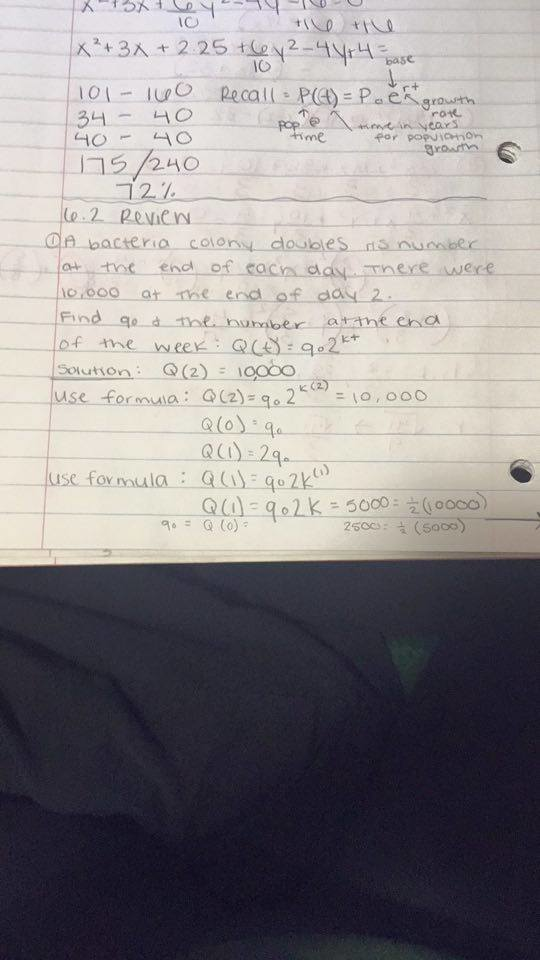 x² + 3x + 6/10 y² - 4y - 16 = 0
+16 +16
x² + 3x + 2.25 + 6/10 y² - 4y + 4 =
base
↓
101 - 160 Recall = P(t) = P₀e^rt growth
rate
34 - 40 pop @ time in years
time for population
40 - 40 growth
175/240
72%
6.2 Review
① A bacteria colony doubles its number
at the end of each day. There were
10,000 at the end of day 2.
Find q₀ & the number at the end
of the week: Q(t) = q₀2^kt
Solution: Q(2) = 10,000
Use formula: Q(2) = q₀2^k(2) = 10,000
Q(0) = q₀
Q(1) = 2q₀
use formula: Q(1) = q₀2k^(1)
Q(1) = q₀2k = 5000 = ½(10000)
q₀ = Q(0) = 2500 = ½(5000)